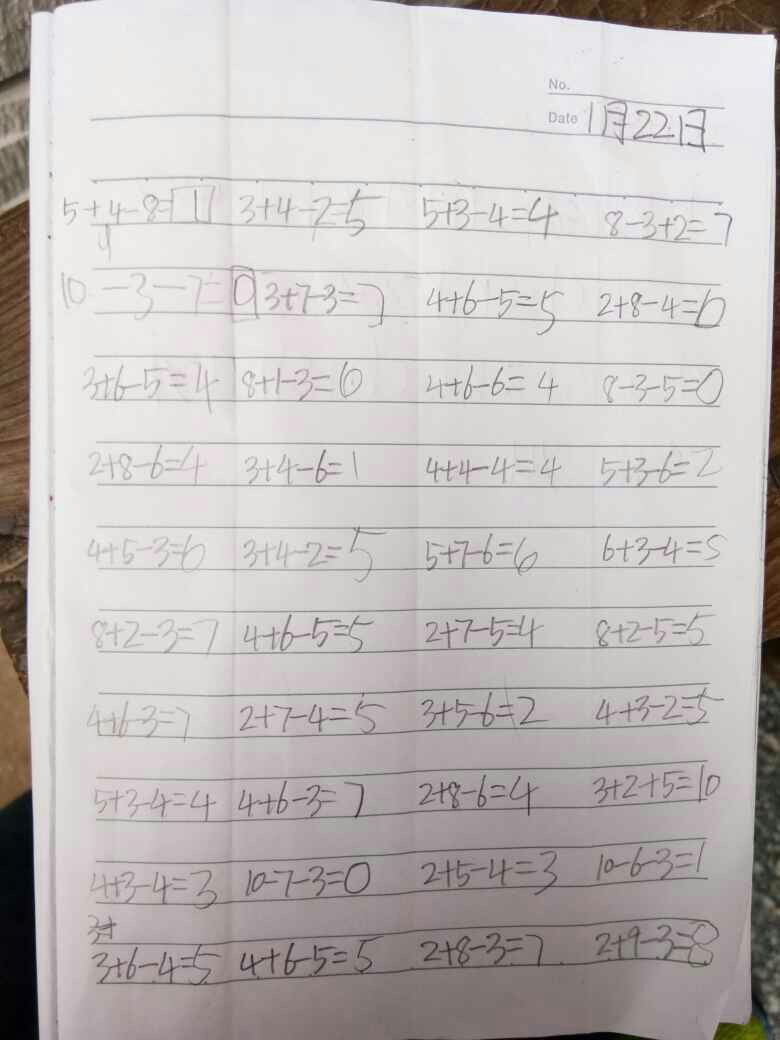 No.
Date 1月22日
5+4-8=1 3+4-2=5 5+3-4=4 8-3+2=7
10-3-7=0 3+7-3=7 4+6-5=5 2+8-4=6
3+6-5=4 8+1-3=6 4+6-6=4 8-3-5=0
2+8-6=4 3+4-6=1 4+4-4=4 5+3-6=2
4+5-3=6 3+4-2=5 5+7-6=6 6+3-4=5
8+2-3=7 4+6-5=5 2+7-5=4 8+2-5=5
4+6-3=7 2+7-4=5 3+5-6=2 4+3-2=5
5+3-4=4 4+6-3=7 2+8-6=4 3+2+5=10
4+3-4=3 10-7-3=0 2+5-4=3 10-6-3=1
3+6-4=5 4+6-5=5 2+8-3=7 2+9-3=8